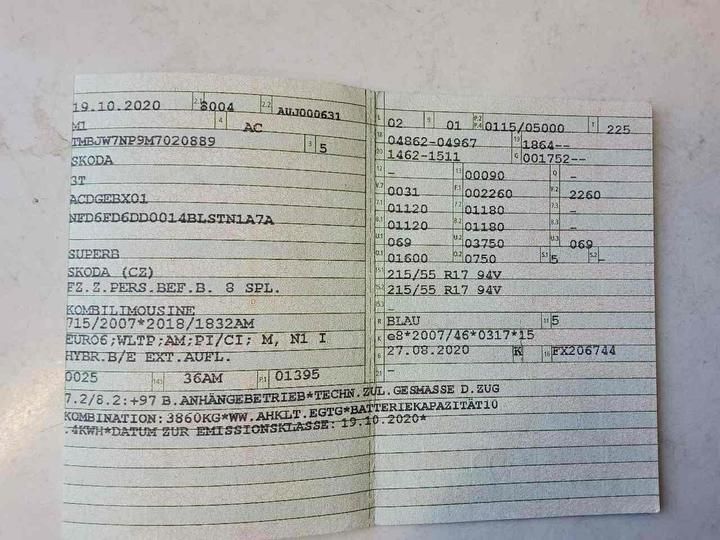 19.10.2020 2.1 8004 2.2 AUJ000631
M1 4 AC
TMBJW7NP9M7020889 3 5
SKODA
3T
ACDGEBX01
NFD6FD6DD0014BLSTN1A7A
SUPERB
SKODA (CZ)
FZ.Z.PERS.BEF.B. 8 SPL.
KOMBILIMOUSINE
715/2007*2018/1832AM
EURO6;WLTP;AM;PI/CI; M, N1 I
HYBR.B/E EXT.AUFL.
0025 14.1 36AM P.1 01395
7.2/8.2:+97 B.ANHÄNGEBETRIEB*TECHN.ZUL.GESMASSE D.ZUG
KOMBINATION:3860KG*WW.AHKLT.EGTG*BATTERIEKAPAZITÄT10
.4KWH*DATUM ZUR EMISSIONSKLASSE: 19.10.2020*
L 02 9 01 P.2 P.4 0115/05000 T 225
18 04862-04967 19 1864--
20 1462-1511 G 001752--
12 - 13 00090 Q -
V.7 0031 F.1 002260 F.2 2260
7.1 01120 7.2 01180 7.3 -
8.1 01120 8.2 01180 8.3 -
U.1 069 U.2 03750 U.3 069
O.1 01600 O.2 0750 S.1 5 S.2 -
15.1 215/55 R17 94V
15.2 215/55 R17 94V
15.3
R BLAU 11 5
K e8*2007/46*0317*15
6 27.08.2020 17 K 16 FX206744
21 -